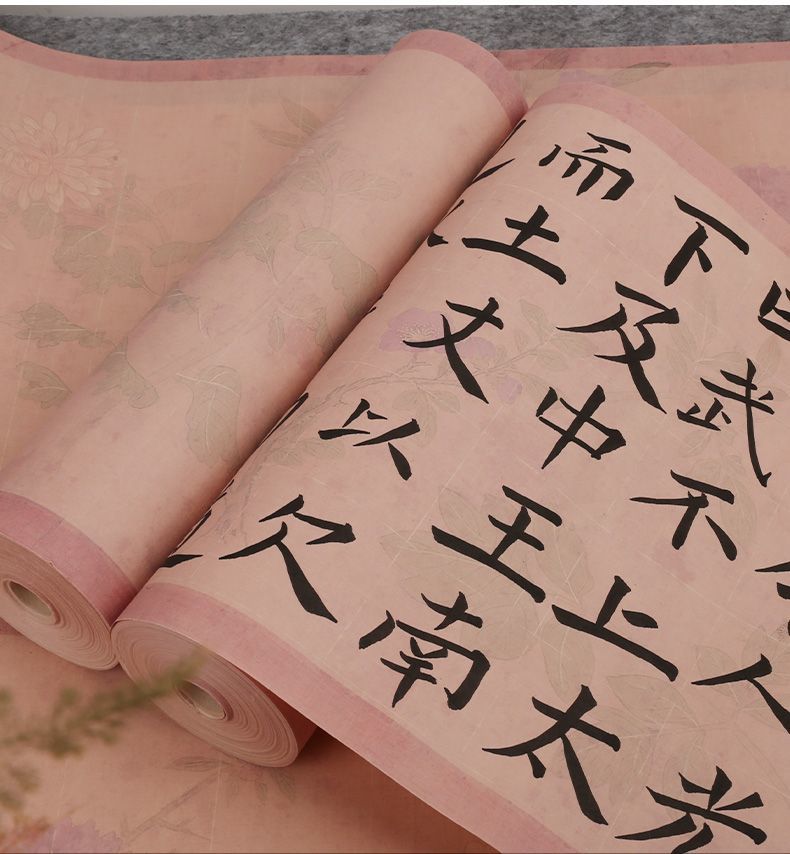 人光
武不上太
下及中王南
而土丈以欠